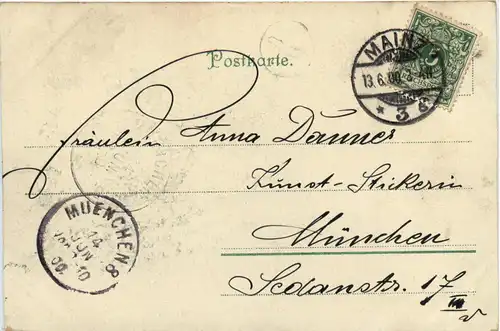 Postkarte.
MAINZ
13.6.00
* 3 *
Fräulein Anna Danner
Kunst-Stickerin
München
Sedanstr. 17
III
MUENCHEN 8
14
JUN
00